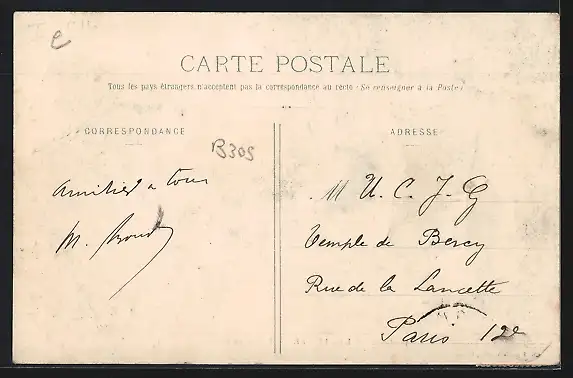 e
CARTE POSTALE
Tous les pays étrangers n'acceptent pas la correspondance au recto (Se renseigner à la Poste)
CORRESPONDANCE
B305
Amitiés a tous
M.
ADRESSE
M U. C. J. G
Temple de Bercy
Rue de la Lancette
Paris 12e